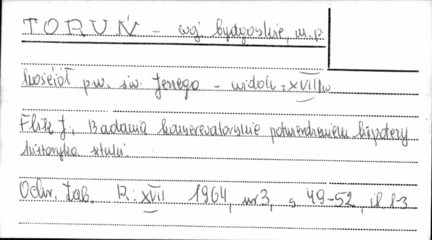 TORUŃ - woj. bydgoskie, m.p.
Kościół p.w. św. Jerzego - widok z XVIII w
Flik J., Badania konserwatorskie potwierdzeniem hipotezy
historyka sztuki.
Ochr. Zab. R: XVII 1964, nr 3, s 49-52, il 1-3